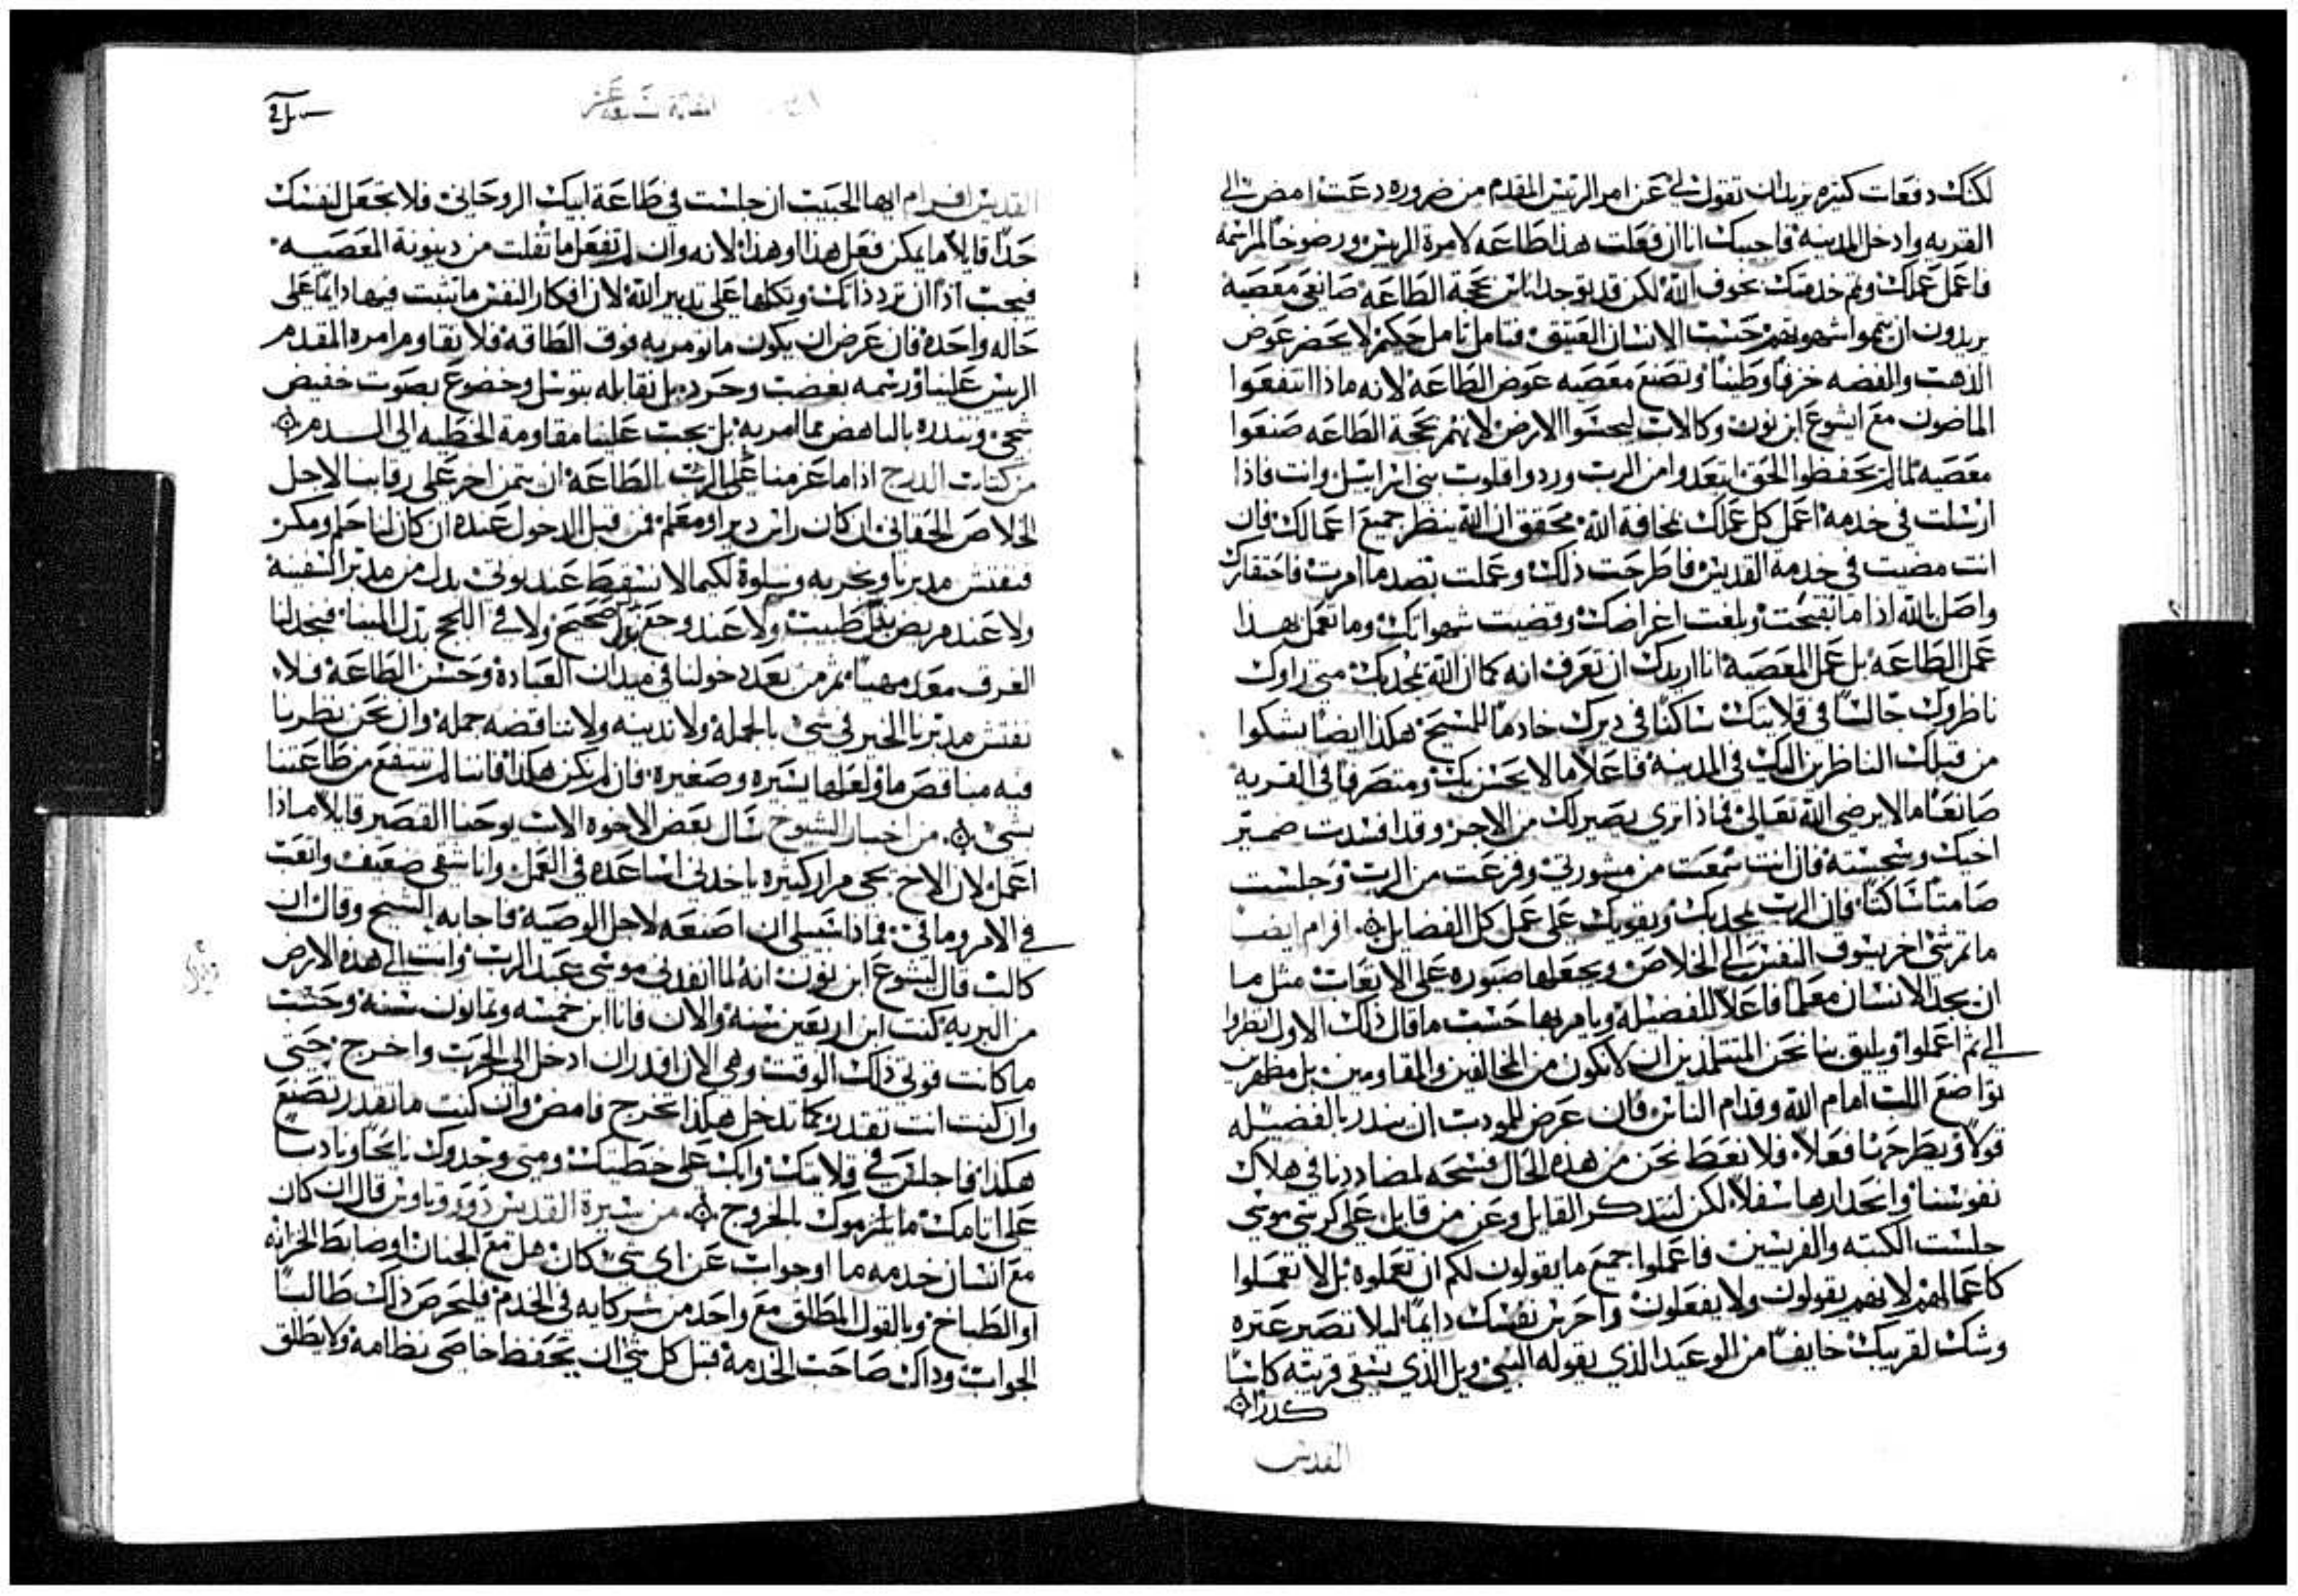 لكنك دفعات كثيره تريدان تقول لي عن امر الريس المقدم من ضروره دعت امض الي
القريه وادخل المدينه فاجيبك انا ان فعلت هذا طاعه لامرة الريس ورضوخا لمراسمه
فاعمل عملك وتم خدمتك بخوف الله لكن قد يوجد اناس بحجة الطاعه صانعي معصيه
يريدون ان يتموا شهوتهم حسب الانسان العتيق فتامل تامل حكيم لا يحضر عوض
الذهب والفضه خزفا وطينا وتصنع معصيه عوض الطاعه لانه ماذا انتفعوا
الماضون مع ايشوع ابن نون وكالاب ليجسوا الارض لانهم بحجة الطاعه صنعوا
معصيه لما لم يحفظوا الحق ابتعدوا من الرب وردوا قلوب بني اسراييل وانت فاذا
ارسلت في خدمه اعمل كل عملك بمخافة الله محقق ان الله ينظر جميع اعمالك فان
انت مضيت في خدمة القديس فاطرحت ذلك وعملت بضد ما امرت فاحتقارك
واصل بالله اذا ما بقبحت وبلغت اغراضك وقضيت شهواتك وما تعمل بهذا
عمل الطاعه بل عمل المعصيه انا اريدك ان تعرف انه كما ان الله يمجد بك متي راوك
ناظروك جالسا في قلايتك ساكنا في ديرك خادما للمسيح هكذا ايضا يشكوا
من قبلك الناظرين اليك في المدينه فاعلا ما لا يحسن بك ومتصرفا في القريه
صانعا ما لا يرضي الله تعالي فماذا تري يصير لك من الاجر وقد افسدت ضمير
اخيك ونجسته فان انت سمعت من مشورتي وفزعت من الرب وجلست
صامتا ساكتا فان الرب يمجدك ويقويك علي عمل كل الفضايل افرام ايضا
ما ثم شي اخر يشوق النفس الي الخلاص ويجعلها صبوره علي الاتعاب مثل ما
ان يجد الانسان معلما فاعلا للفضيله ويامر بها حسب ما قال ذلك الاول انظروا
الي ثم اعملوا ويليق بنا نحن المتتلمذين ان لا نكون من المخالفين والمقاومين بل مظهرين
تواضع اللب امام الله وقدام الناس فان عرض للمودب ان ينذر بالفضيله
قولا ويطرحها فعلا فلا نعط نحن من هذه الحال فسحه لمضاددنا في هلاك
نفوسنا وانحدارها سفلا لكن لنتذكر القايل وعن من قايل علي كرسي موسي
جلست الكتبه والفريسين فاعملوا جميع ما يقولون لكم ان تعملوه بل لا تعملوا
كاعمالهم لانهم يقولون ولا يفعلون واحرس نفسك دايما ليلا تصير عثره
وشك لقريبك خايفا من الوعيد الذي يقوله النبي ويل الذي يسقي قريبه كاسا
كدرا
القديس
المقالة تاسعة عشر
القديس افرام ايها الحبيب ان جلست في طاعة ابيك الروحاني فلا تجعل لنفسك
حدا قايلا ما يمكن فعل هذا وهذا لانه وان لم تفعل ما تفلت من دينونة المعصيه
فيجب اذا ان ترد ذاتك وتكلها علي تدبير الله لان افكار النفس ما تثبت فيها دايما علي
حاله واحده فان عرض ان يكون ما نومر به فوق الطاقه فلا نقاوم امره المقدم
الريس علينا ورسمه بغضب وحرد بل نقابله بتوسل وخضوع بصوت خفيض
شجي وننذره بالباهض مما امر به بل يجب علينا مقاومة الخطيه الي السدم
من كتاب الدرج اذا ما عزمنا علي الرب بالطاعه ان نتمن اخر علي رقابنا لاجل
الخلاص الحقاني ان كان راس دير او معلم فمن قبل الدخول عنده ان كان لنا حلم ومكر
فنفتش مدبرنا ونجربه ونبلوه لكيما لا نسقط عند نوتي بدل من مدبر السفينه
ولا عند مريض بدل طبيب ولا عند وجع بدل صحيح ولا في اللجج بدل المينا فيجد لنا
الغرق معدا مهيا ثم من بعد دخولنا في ميدان العبادة وحسن الطاعه فلا
نفتش مدبرنا الخير في شي بالجمله ولا ندينه ولا نناقضه جمله وان نحن نظرنا
فيه مناقص ما ولعلها يسيره وصغيره فان لم نكن هكذا فاننا لم ننتفع من طاعتنا
بشي من اخبار الشيوخ سال بعض الاخوه الاب يوحنا القصير قايلا ماذا
اعمل لان الاخ يجي مرار كثيره ياخدني اساعده في العمل وانا شقي ضعيف واتعب
في الامر وما في فماذا سبيلي ان اصنعه لاجل الوصيه فاجابه الشيخ وقال ان
كالب قال ليشوع ابن نون انه لما انفدني موسي عبد الرب وانت الي هذه الارض
من البريه كنت ابن اربعين سنه والان فانا ابن خمسه وثمانون سنه وحسب
ما كانت قوتي ذلك الوقت وهي الان اقدر ان ادخل الي الحرب واخرج حتي
وان كنت انت تقدر كما تدخل هكذا تخرج فامض وان كنت ما تقدر تصنع
هكذا فاجلس في قلايتك وابك علي خطيتك ومتي وجدوك نايحا ونادبا
علي اثامك ما يلزموك بالخروج من سيرة القديس دوروتاوس قال ان كان
مع انسان خدمه ما او جواب عن اي شي كان هل مع الجنان او ضابط الخزانه
او الطباخ وبالقول المطلق مع واحد من شركايه في الخدم فليحرص ذاك طالبا
الجواب وذاك صاحب الخدمه قبل كل شي ان يحفظ خاصي نظامه ولا يطلق